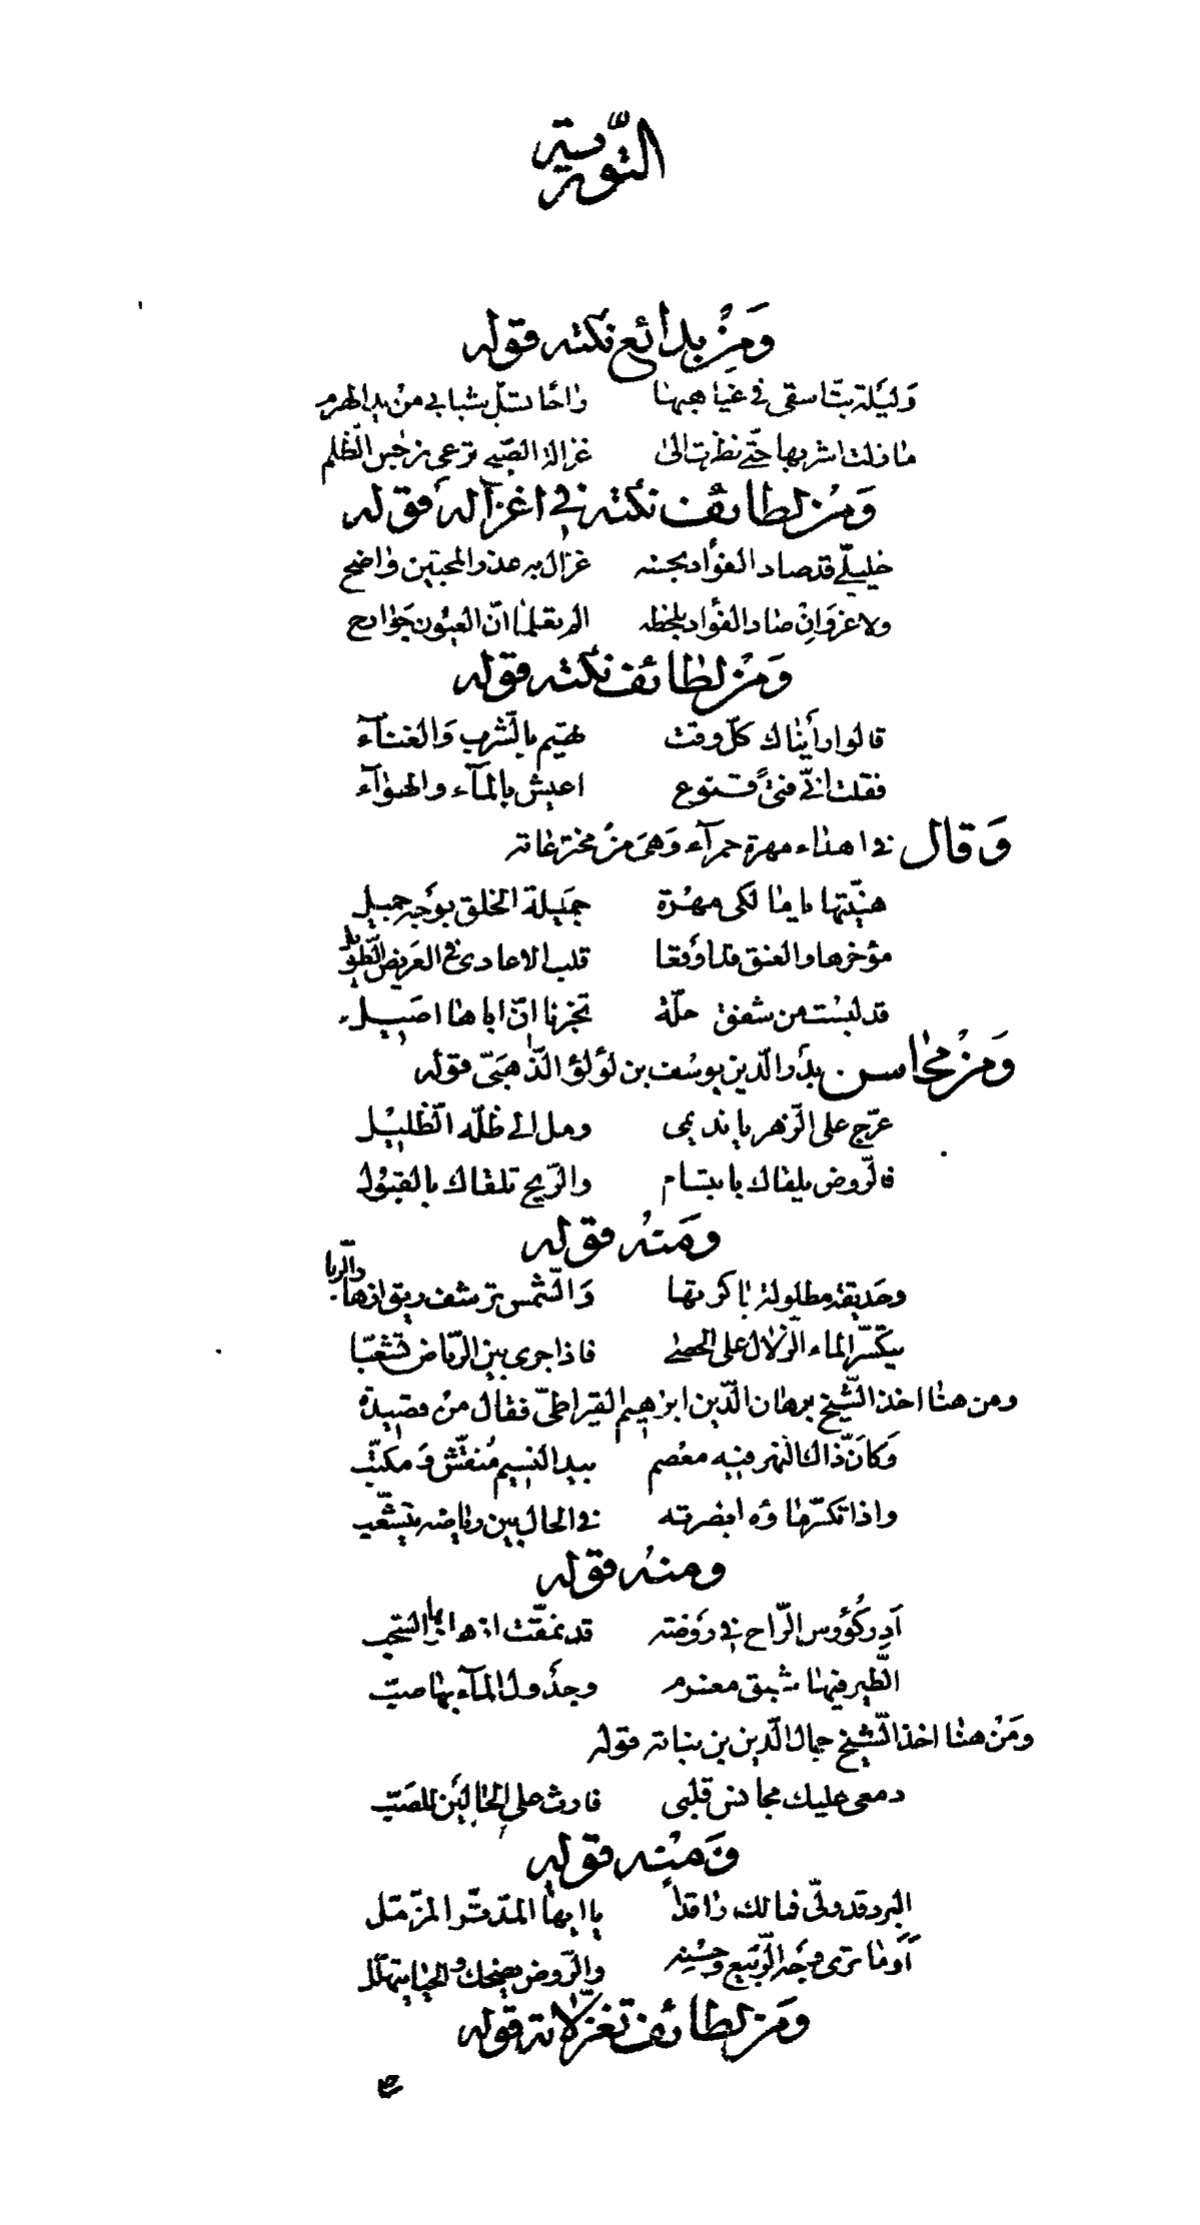 التورية
وَمِنْ بدائع نكته قوله
وَليَلة بتّ اسقى فى غياهبها راحًا تسلّ شبابي منْ يد الهرم
ما زلت اشربها حتّى نظرت الى غزالة الصّبح ترعى نرجس الظّلم
وَمنْ لطائف نكته في اغزاله قوله
خليلىّ قد صاد الفؤاد بحسنه غزال به عذر المحبّين واضح
ولا غرو انْ صاد الفؤاد بلحظه الم تعلما انّ العيُون جَوارح
وَمنْ لطائف نكته قوله
قالوا رأيناك كلّ وقت تهيم بالشّرب وَالغنآء
فقلت انّى فتىً قنوع اعيش بالمآء والهوآء
وَقال فى اهداء مهرة حمرآء وَهىَ منْ مخترعاته
هنّيتها يا مالكى مهْرة جمَيلة الخلق بوَجه جميل
مؤخرها والعنق قد اوقعا قلب الاعادى فى العَريض الطّويل
قد لبسْت من شفق حلّة تخبرنا انّ اباها اصَيل
وَمنْ محاسن بدر الدّين يوسُف بن لؤلؤ الذّهَبىّ قوله
عرّج على الزّهر يا نديمى ومل الى ظلّه الظّليل
فالرّوض يلقاك بابتسام والرّيح تلقاك بالقبُول
ومَنهُ قوله
وحَديقة مطلولة باكرتها وَالشّمس ترشف ريق ازهار الرّبا
يتكسّر الماء الزّلال على الحصى فاذا جرى بين الرّياض تشعّبا
ومن هنا اخذ الشّيخ برهان الدّين ابراهيم القيراطىّ فقال منْ قصيدة
وَكانّ ذاك النهر فيه معْصم بيد النسيم مُنقّش وَمكتّب
واذا تكسّر ماؤه ابصرته فى الحال بين رياضه يتشعّب
ومنهُ قوله
اَدِر كُؤوس الرّاح في رَوضة قد نمّقت ازهارها السّحب
الطّير فيها شيق مغرم وجدْول المآء بها صبّ
ومَنْ هنا اخذ الشّيخ جمال الدّين بن نباته قوله
دمعى عليك مجانس قلبى فارث على الحالينْ للصّبّ
وَمنْه قوله
البرد قد ولّى فما لك راقدا يا ايها المدّثّر المزّمّل
أوَما ترى وجْه الرّبيع وحسْنه والرّوض يضحك والحيا يتهلّل
ومَن لطائف تغزّلاته قوله